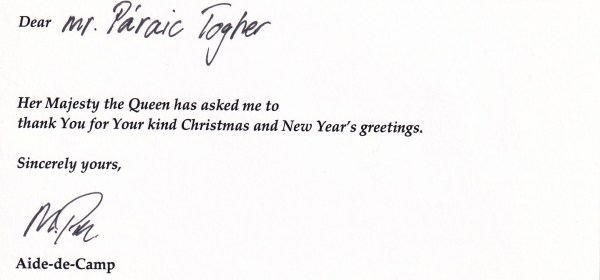 Dear Mr. Páraic Togher
Her Majesty the Queen has asked me to
thank You for Your kind Christmas and New Year's greetings.
Sincerely yours,
Aide-de-Camp